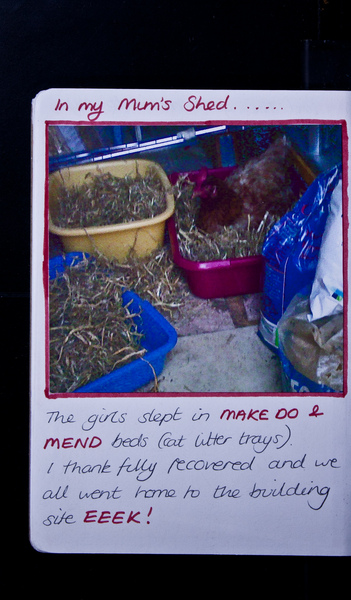 In my Mum's Shed......
The girls slept in MAKE DO &
MEND beds (cat litter trays).
I thank fully recovered and we
all went home to the building
site EEEK!